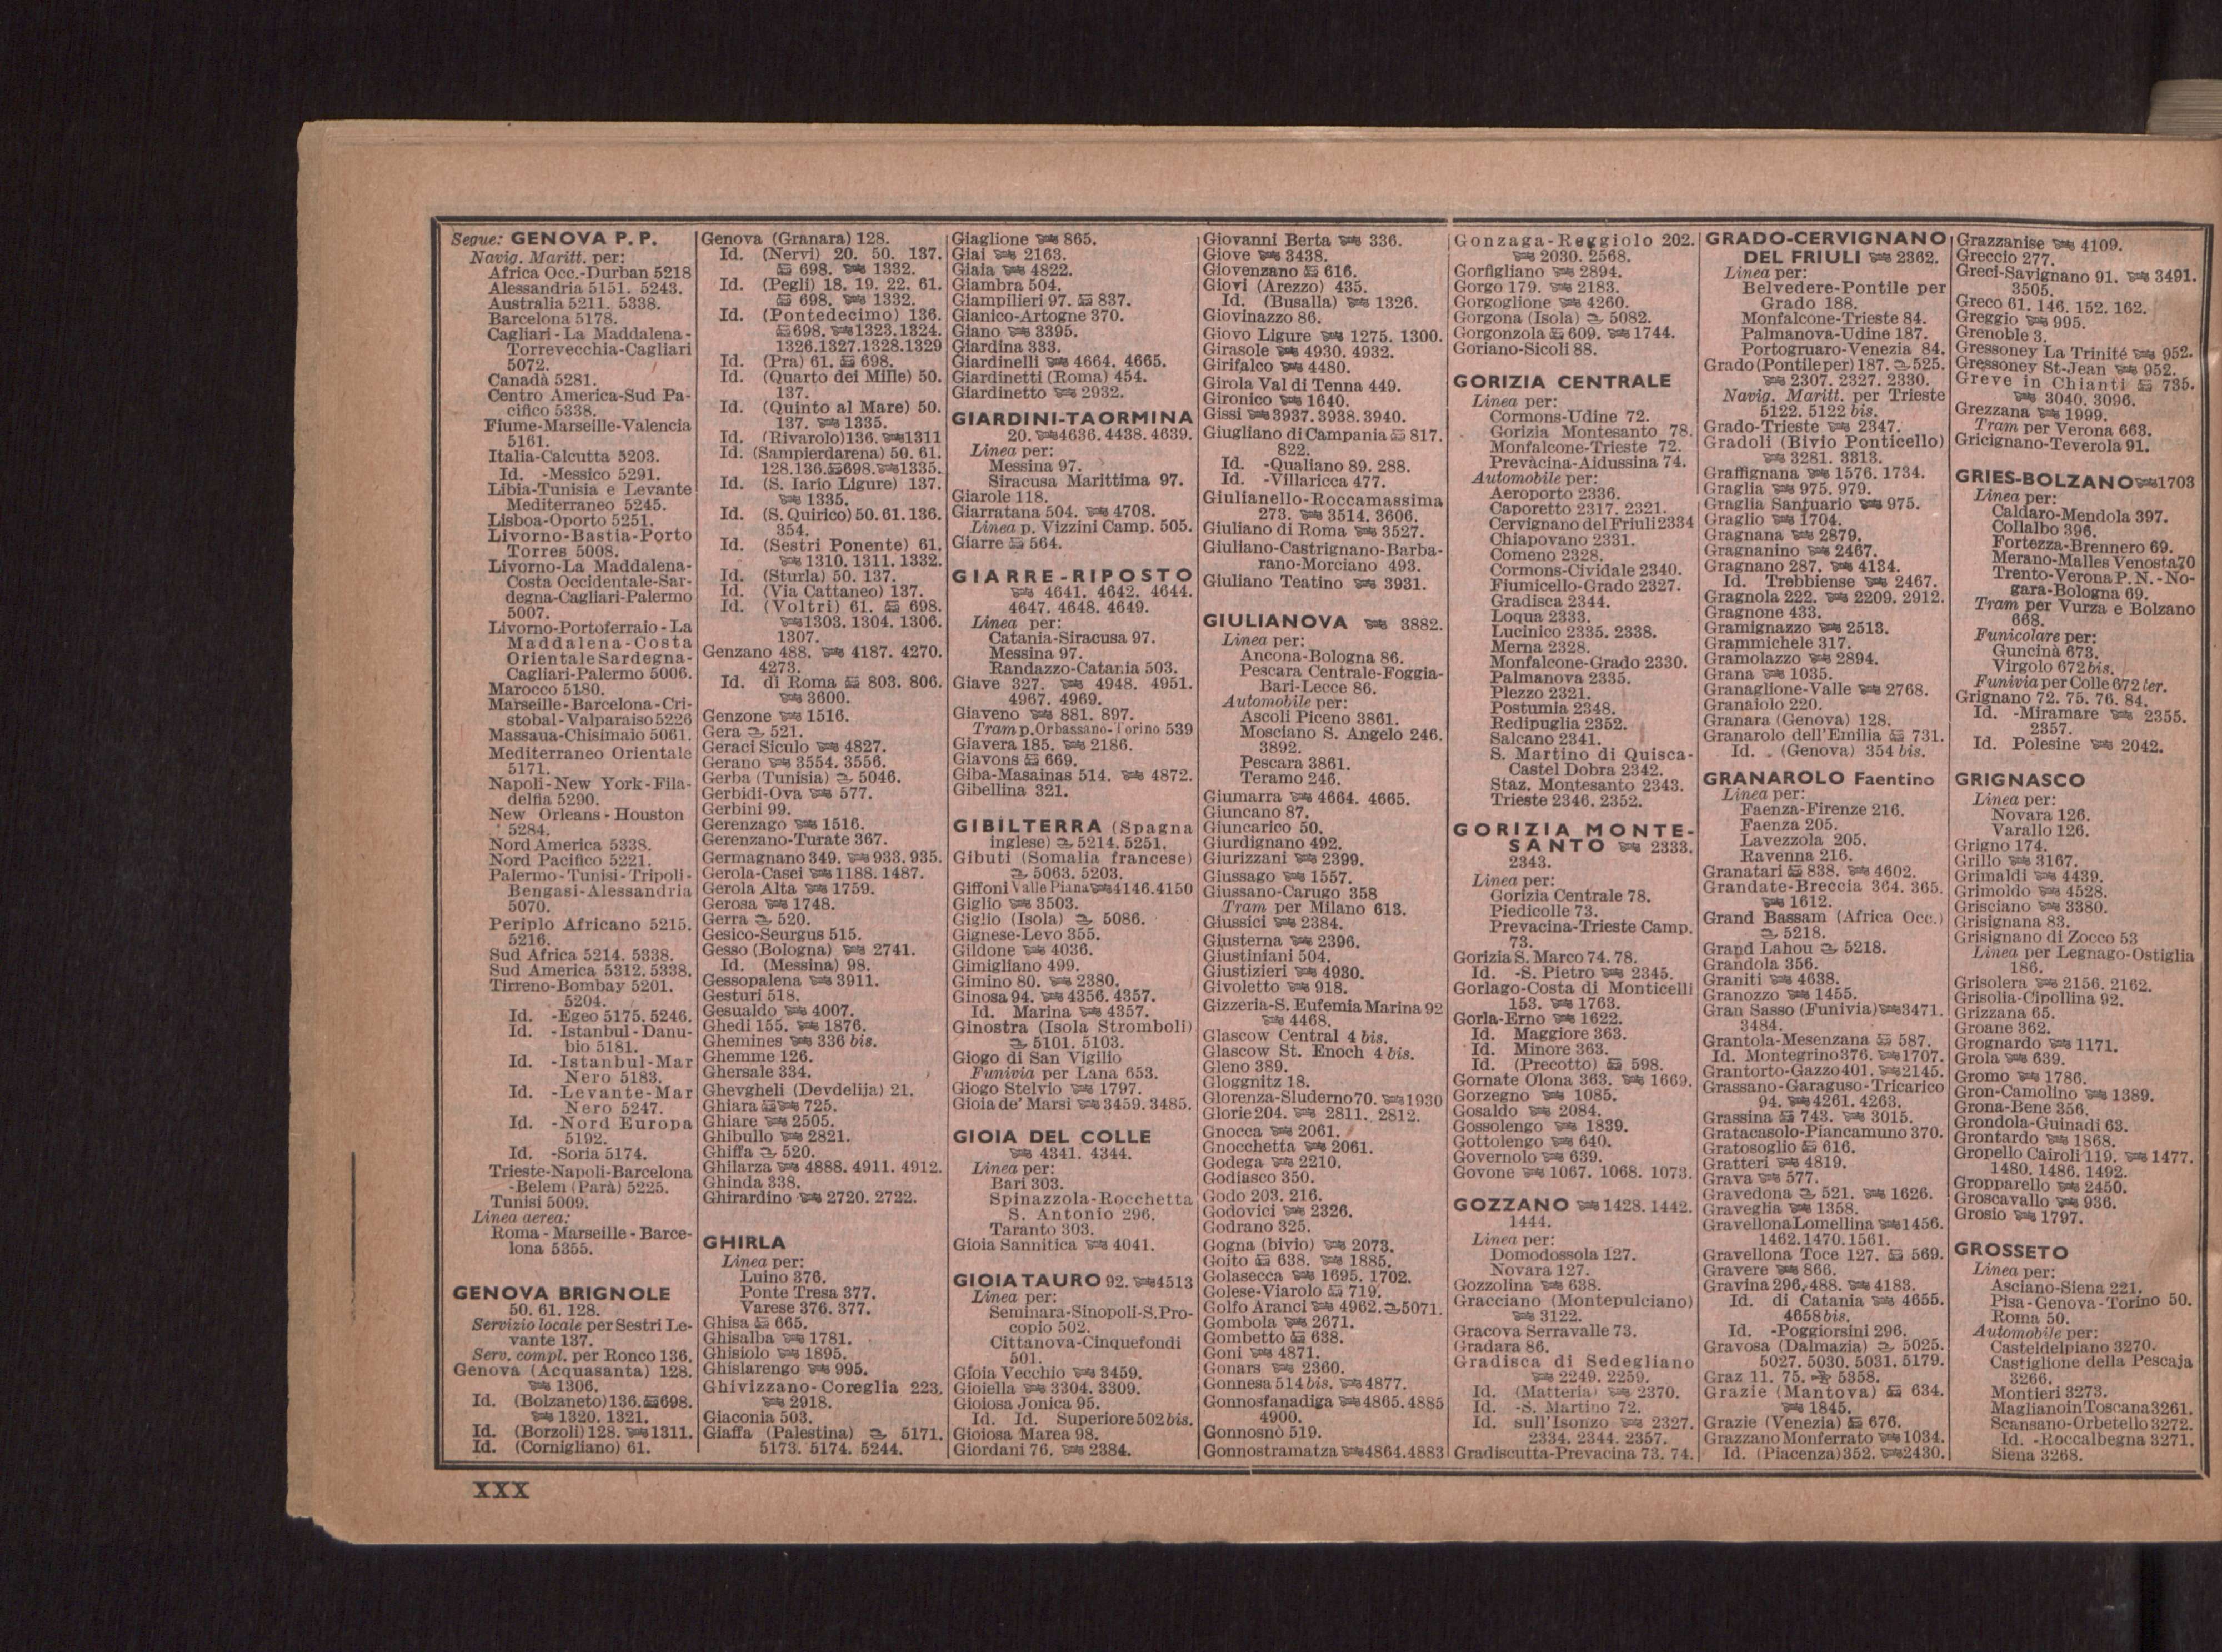 Segue: GENOVA P. P.
Navig. Maritt. per:
Africa Occ.-Durban 5218
Alessandria 5151. 5243.
Australia 5211. 5338.
Barcelona 5178.
Cagliari-La Maddalena-
Torrevecchia-Cagliari
5072.
Canadà 5281.
Centro America-Sud Pa-
cifico 5338.
Fiume-Marseille-Valencia
5161.
Italia-Calcutta 5203.
Id. -Messico 5291.
Libia-Tunisia e Levante
Mediterraneo 5245.
Lisboa-Oporto 5251.
Livorno-Bastia-Porto
Torres 5008.
Livorno-La Maddalena-
Costa Occidentale-Sar-
degna-Cagliari-Palermo
5007.
Livorno-Portoferraio-La
Maddalena-Costa
Orientale Sardegna-
Cagliari-Palermo 5006.
Marocco 5180.
Marseille-Barcelona-Cri-
stobal-Valparaiso 5226
Massaua-Chisimaio 5061.
Mediterraneo Orientale
5171.
Napoli-New York-Fila-
delfia 5290.
New Orleans-Houston
5284.
Nord America 5338.
Nord Pacifico 5221.
Palermo-Tunisi-Tripoli-
Bengasi-Alessandria
5070.
Periplo Africano 5215.
5216.
Sud Africa 5214. 5338.
Sud America 5312. 5338.
Tirreno-Bombay 5201.
5204.
Id. -Egeo 5175. 5246.
Id. -Istanbul-Danu-
bio 5181.
Id. -Istanbul-Mar
Nero 5183.
Id. -Levante-Mar
Nero 5247.
Id. -Nord Europa
5192.
Id. -Soria 5174.
Trieste-Napoli-Barcelona
-Belem (Parà) 5225.
Tunisi 5009.
Linea aerea:
Roma-Marseille-Barce-
lona 5355.
GENOVA BRIGNOLE
50. 61. 128.
Servizio locale per Sestri Le-
vante 137.
Serv. compl. per Ronco 136.
Genova (Acquasanta) 128.
1306.
Id. (Bolzaneto) 136. 698.
1320. 1321.
Id. (Borzoli) 128. 1311.
Id. (Cornigliano) 61.
Genova (Granara) 128.
Id. (Nervi) 20. 50. 137.
698. 1332.
Id. (Pegli) 18. 19. 22. 61.
698. 1332.
Id. (Pontedecimo) 136.
698. 1323. 1324.
1326. 1327. 1328. 1329
Id. (Pra) 61. 698.
Id. (Quarto dei Mille) 50.
137.
Id. (Quinto al Mare) 50.
137. 1335.
Id. (Rivarolo) 136. 1311
Id. (Sampierdarena) 50. 61.
128. 136. 698. 1335.
Id. (S. Iario Ligure) 137.
1335.
Id. (S. Quirico) 50. 61. 136.
354.
Id. (Sestri Ponente) 61.
1310. 1311. 1332.
Id. (Sturla) 50. 137.
Id. (Via Cattaneo) 137.
Id. (Voltri) 61. 698.
1303. 1304. 1306.
1307.
Genzano 488. 4187. 4270.
4273.
Id. di Roma 803. 806.
3600.
Genzone 1516.
Gera 521.
Geraci Siculo 4827.
Gerano 3554. 3556.
Gerba (Tunisia) 5046.
Gerbidi-Ova 577.
Gerbini 99.
Gerenzago 1516.
Gerenzano-Turate 367.
Germagnano 349. 933. 935.
Gerola-Casei 1188. 1487.
Gerola Alta 1759.
Gerosa 1748.
Gerra 520.
Gesico-Seurgus 515.
Gesso (Bologna) 2741.
Id. (Messina) 98.
Gessopalena 3911.
Gesturi 518.
Gesualdo 4007.
Ghedi 155. 1876.
Ghemines 336 bis.
Ghemme 126.
Ghersale 334.
Ghevgheli (Devdelija) 21.
Ghiara 725.
Ghiare 2505.
Ghibullo 2821.
Ghiffa 520.
Ghilarza 4888. 4911. 4912.
Ghinda 338.
Ghirardino 2720. 2722.
GHIRLA
Linea per:
Luino 376.
Ponte Tresa 377.
Varese 376. 377.
Ghisa 665.
Ghisalba 1781.
Ghisiolo 1895.
Ghislarengo 995.
Ghivizzano-Coreglia 223.
2918.
Giaconia 503.
Giaffa (Palestina) 5171.
5173. 5174. 5244.
Giaglione 865.
Giai 2163.
Giaia 4822.
Giambra 504.
Giampilieri 97. 837.
Gianico-Artogne 370.
Giano 3395.
Giardina 333.
Giardinelli 4664. 4665.
Giardinetti (Roma) 454.
Giardinetto 2932.
GIARDINI-TAORMINA
20. 4636. 4438. 4639.
Linea per:
Messina 97.
Siracusa Marittima 97.
Giarole 118.
Giarratana 504. 4708.
Linea p. Vizzini Camp. 505.
Giarre 564.
GIARRE-RIPOSTO
4641. 4642. 4644.
4647. 4648. 4649.
Linea per:
Catania-Siracusa 97.
Messina 97.
Randazzo-Catania 503.
Giave 327. 4948. 4951.
4967. 4969.
Giaveno 881. 897.
Tram p. Orbassano-Torino 539
Giavera 185. 2186.
Giavons 669.
Giba-Masainas 514. 4872.
Gibellina 321.
GIBILTERRA (Spagna
inglese) 5214. 5251.
Gibuti (Somalia francese)
5063. 5203.
Giffoni Valle Piana 4146. 4150
Giglio 3503.
Giglio (Isola) 5086.
Gignese-Levo 355.
Gildone 4036.
Gimigliano 499.
Gimino 80. 2380.
Ginosa 94. 4356. 4357.
Id. Marina 4357.
Ginostra (Isola Stromboli)
5101. 5103.
Giogo di San Vigilio
Funivia per Lana 653.
Giogo Stelvio 1797.
Gioia de' Marsi 3459. 3485.
GIOIA DEL COLLE
4341. 4344.
Linea per:
Bari 303.
Spinazzola-Rocchetta
S. Antonio 296.
Taranto 303.
Gioia Sannitica 4041.
GIOIA TAURO 92. 4513
Linea per:
Seminara-Sinopoli-S. Pro-
copio 502.
Cittanova-Cinquefondi
501.
Gioia Vecchio 3459.
Gioiella 3304. 3309.
Gioiosa Jonica 95.
Id. Id. Superiore 502 bis.
Gioiosa Marea 98.
Giordani 76. 2384.
Giovanni Berta 336.
Giove 3438.
Giovenzano 616.
Giovi (Arezzo) 435.
Id. (Busalla) 1326.
Giovinazzo 86.
Giovo Ligure 1275. 1300.
Girasole 4930. 4932.
Girifalco 4480.
Girola Val di Tenna 449.
Gironico 1640.
Gissi 3937. 3938. 3940.
Giugliano di Campania 817.
822.
Id. -Qualiano 89. 288.
Id. -Villaricca 477.
Giulianello-Roccamassima
273. 3514. 3606.
Giuliano di Roma 3527.
Giuliano-Castrignano-Barba-
rano-Morciano 493.
Giuliano Teatino 3931.
GIULIANOVA 3882.
Linea per:
Ancona-Bologna 86.
Pescara Centrale-Foggia-
Bari-Lecce 86.
Automobile per:
Ascoli Piceno 3861.
Mosciano S. Angelo 246.
3892.
Pescara 3861.
Teramo 246.
Giumarra 4664. 4665.
Giuncano 87.
Giuncarico 50.
Giurdignano 492.
Giurizzani 2399.
Giussago 1557.
Giussano-Carugo 358
Tram per Milano 613.
Giussici 2384.
Giusterna 2396.
Giustiniani 504.
Giustizieri 4930.
Givoletto 918.
Gizzeria-S. Eufemia Marina 92
4468.
Glascow Central 4 bis.
Glascow St. Enoch 4 bis.
Gleno 389.
Gloggnitz 18.
Glorenza-Sluderno 70. 1930
Glorie 204. 2811. 2812.
Gnocca 2061.
Gnocchetta 2061.
Godega 2210.
Godiasco 350.
Godo 203. 216.
Godovici 2326.
Godrano 325.
Gogna (bivio) 2073.
Goito 638. 1885.
Golasecca 1695. 1702.
Golese-Viarolo 719.
Golfo Aranci 4962. 5071.
Gombola 2671.
Gombetto 638.
Goni 4871.
Gonars 2360.
Gonnesa 514 bis. 4877.
Gonnosfanadiga 4865. 4885
4900.
Gonnosnò 519.
Gonnostramatza 4864. 4883
Gonzaga-Reggiolo 202.
2030. 2568.
Gorfigliano 2894.
Gorgo 179. 2183.
Gorgoglione 4260.
Gorgona (Isola) 5082.
Gorgonzola 609. 1744.
Goriano-Sicoli 88.
GORIZIA CENTRALE
Linea per:
Cormons-Udine 72.
Gorizia Montesanto 78.
Monfalcone-Trieste 72.
Prevàcina-Aidussina 74.
Automobile per:
Aeroporto 2336.
Caporetto 2317. 2321.
Cervignano del Friuli 2334
Chiapovano 2331.
Comeno 2328.
Cormons-Cividale 2340.
Fiumicello-Grado 2327.
Gradisca 2344.
Loqua 2333.
Lucinico 2335. 2338.
Merna 2328.
Monfalcone-Grado 2330.
Palmanova 2335.
Plezzo 2321.
Postumia 2348.
Redipuglia 2352.
Salcano 2341.
S. Martino di Quisca-
Castel Dobra 2342.
Staz. Montesanto 2343.
Trieste 2346. 2352.
GORIZIA MONTE-
SANTO 2333.
2343.
Linea per:
Gorizia Centrale 78.
Piedicolle 73.
Prevacina-Trieste Camp.
73.
Gorizia S. Marco 74. 78.
Id. -S. Pietro 2345.
Gorlago-Costa di Monticelli
153. 1763.
Gorla-Erno 1622.
Id. Maggiore 363.
Id. Minore 363.
Id. (Precotto) 598.
Gornate Olona 363. 1669.
Gorzegno 1085.
Gosaldo 2084.
Gossolengo 1839.
Gottolengo 640.
Governolo 639.
Govone 1067. 1068. 1073.
GOZZANO 1428. 1442.
1444.
Linea per:
Domodossola 127.
Novara 127.
Gozzolina 638.
Gracciano (Montepulciano)
3122.
Gracova Serravalle 73.
Gradara 86.
Gradisca di Sedegliano
2249. 2259.
Id. (Matteria) 2370.
Id. -S. Martino 72.
Id. sull'Isonzo 2327.
2334. 2344. 2357.
Gradiscutta-Prevacina 73. 74.
GRADO-CERVIGNANO
DEL FRIULI 2362.
Linea per:
Belvedere-Pontile per
Grado 188.
Monfalcone-Trieste 84.
Palmanova-Udine 187.
Portogruaro-Venezia 84.
Grado (Pontile per) 187. 525.
2307. 2327. 2330.
Navig. Maritt. per Trieste
5122. 5122 bis.
Grado-Trieste 2347.
Gradoli (Bivio Ponticello)
3281. 3313.
Graffignana 1576. 1734.
Graglia 975. 979.
Graglia Santuario 975.
Graglio 1704.
Gragnana 2879.
Gragnanino 2467.
Gragnano 287. 4134.
Id. Trebbiense 2467.
Gragnola 222. 2209. 2912.
Gragnone 433.
Gramignazzo 2513.
Grammichele 317.
Gramolazzo 2894.
Grana 1035.
Granaglione-Valle 2768.
Granaiolo 220.
Granara (Genova) 128.
Granarolo dell'Emilia 731.
Id. (Genova) 354 bis.
GRANAROLO Faentino
Linea per:
Faenza-Firenze 216.
Faenza 205.
Lavezzola 205.
Ravenna 216.
Granatari 838. 4602.
Grandate-Breccia 364. 365.
1612.
Grand Bassam (Africa Occ.)
5218.
Grand Lahou 5218.
Grandola 356.
Graniti 4638.
Granozzo 1455.
Gran Sasso (Funivia) 3471.
3484.
Grantola-Mesenzana 587.
Id. Montegrino 376. 1707.
Grantorto-Gazzo 401. 2145.
Grassano-Garaguso-Tricarico
94. 4261. 4263.
Grassina 743. 3015.
Gratacasolo-Piancamuno 370.
Gratosoglio 616.
Gratteri 4819.
Grava 577.
Gravedona 521. 1626.
Graveglia 1358.
Gravellona Lomellina 1456.
1462. 1470. 1561.
Gravellona Toce 127. 569.
Gravere 866.
Gravina 296. 488. 4183.
Id. di Catania 4655.
4658 bis.
Id. -Poggiorsini 296.
Gravosa (Dalmazia) 5025.
5027. 5030. 5031. 5179.
Graz 11. 75. 5358.
Grazie (Mantova) 634.
1845.
Grazie (Venezia) 676.
Grazzano Monferrato 1034.
Id. (Piacenza) 352. 2430.
Grazzanise 4109.
Greccio 277.
Greci-Savignano 91. 3491.
3505.
Greco 61. 146. 152. 162.
Greggio 995.
Grenoble 3.
Gressoney La Trinité 952.
Gressoney St-Jean 952.
Greve in Chianti 735.
3040. 3096.
Grezzana 1999.
Tram per Verona 663.
Gricignano-Teverola 91.
GRIES-BOLZANO 1703
Linea per:
Caldaro-Mendola 397.
Collalbo 396.
Fortezza-Brennero 69.
Merano-Malles Venosta 70
Trento-Verona P. N.-No-
gara-Bologna 69.
Tram per Vurza e Bolzano
668.
Funicolare per:
Guncinà 673.
Virgolo 672 bis.
Funivia per Colle 672 ter.
Grignano 72. 75. 76. 84.
Id. -Miramare 2355.
2357.
Id. Polesine 2042.
GRIGNASCO
Linea per:
Novara 126.
Varallo 126.
Grigno 174.
Grillo 3167.
Grimaldi 4439.
Grimoldo 4528.
Grisciano 3380.
Grisignana 83.
Grisignano di Zocco 53
Linea per Legnago-Ostiglia
186.
Grisolera 2156. 2162.
Grisolia-Cipollina 92.
Grizzana 65.
Groane 362.
Grognardo 1171.
Grola 639.
Gromo 1786.
Gron-Camolino 1389.
Grona-Bene 356.
Grondola-Guinadi 63.
Grontardo 1868.
Gropello Cairoli 119. 1477.
1480. 1486. 1492.
Gropparello 2450.
Groscavallo 936.
Grosio 1797.
GROSSETO
Linea per:
Asciano-Siena 221.
Pisa-Genova-Torino 50.
Roma 50.
Automobile per:
Casteldelpiano 3270.
Castiglione della Pescaja
3266.
Montieri 3273.
Magliano in Toscana 3261.
Scansano-Orbetello 3272.
Id. -Roccalbegna 3271.
Siena 3268.
XXX